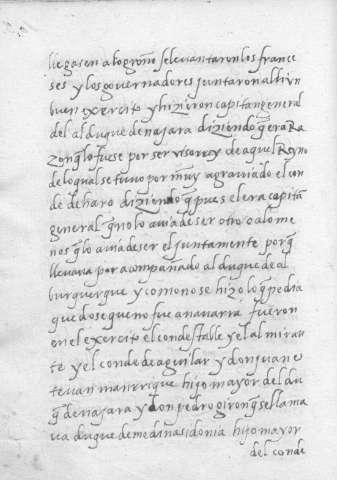 llegasen a logroño se levantaron los france
ses y los governadores juntaron alli un
buen exercito y hizieron capitan general
del al duque de najara diziendo q̃ era Ra
zon q̃ lo fuese por ser visorrey de aquel Reyno
de lo qual se tuvo por muy agraviado el con
de de haro diziendo q̃ pues el era capitã
general q̃ no lo avia de ser otro o a lo me
nos q̃ lo avia de ser el juntamente porq̃
llevava por acompañado al duque de al
burquerque y como no se hizo lo q̃ pedia
quedose que no fue a navarra fueron
en el exercito el condestable y el almiran
te y el conde de aguilar y don juan e
stevan manrrique hijo mayor del du
q̃ de najara y don pedro giron q̃ se llama
va duque de medina sidonia hijo mayor
del conde